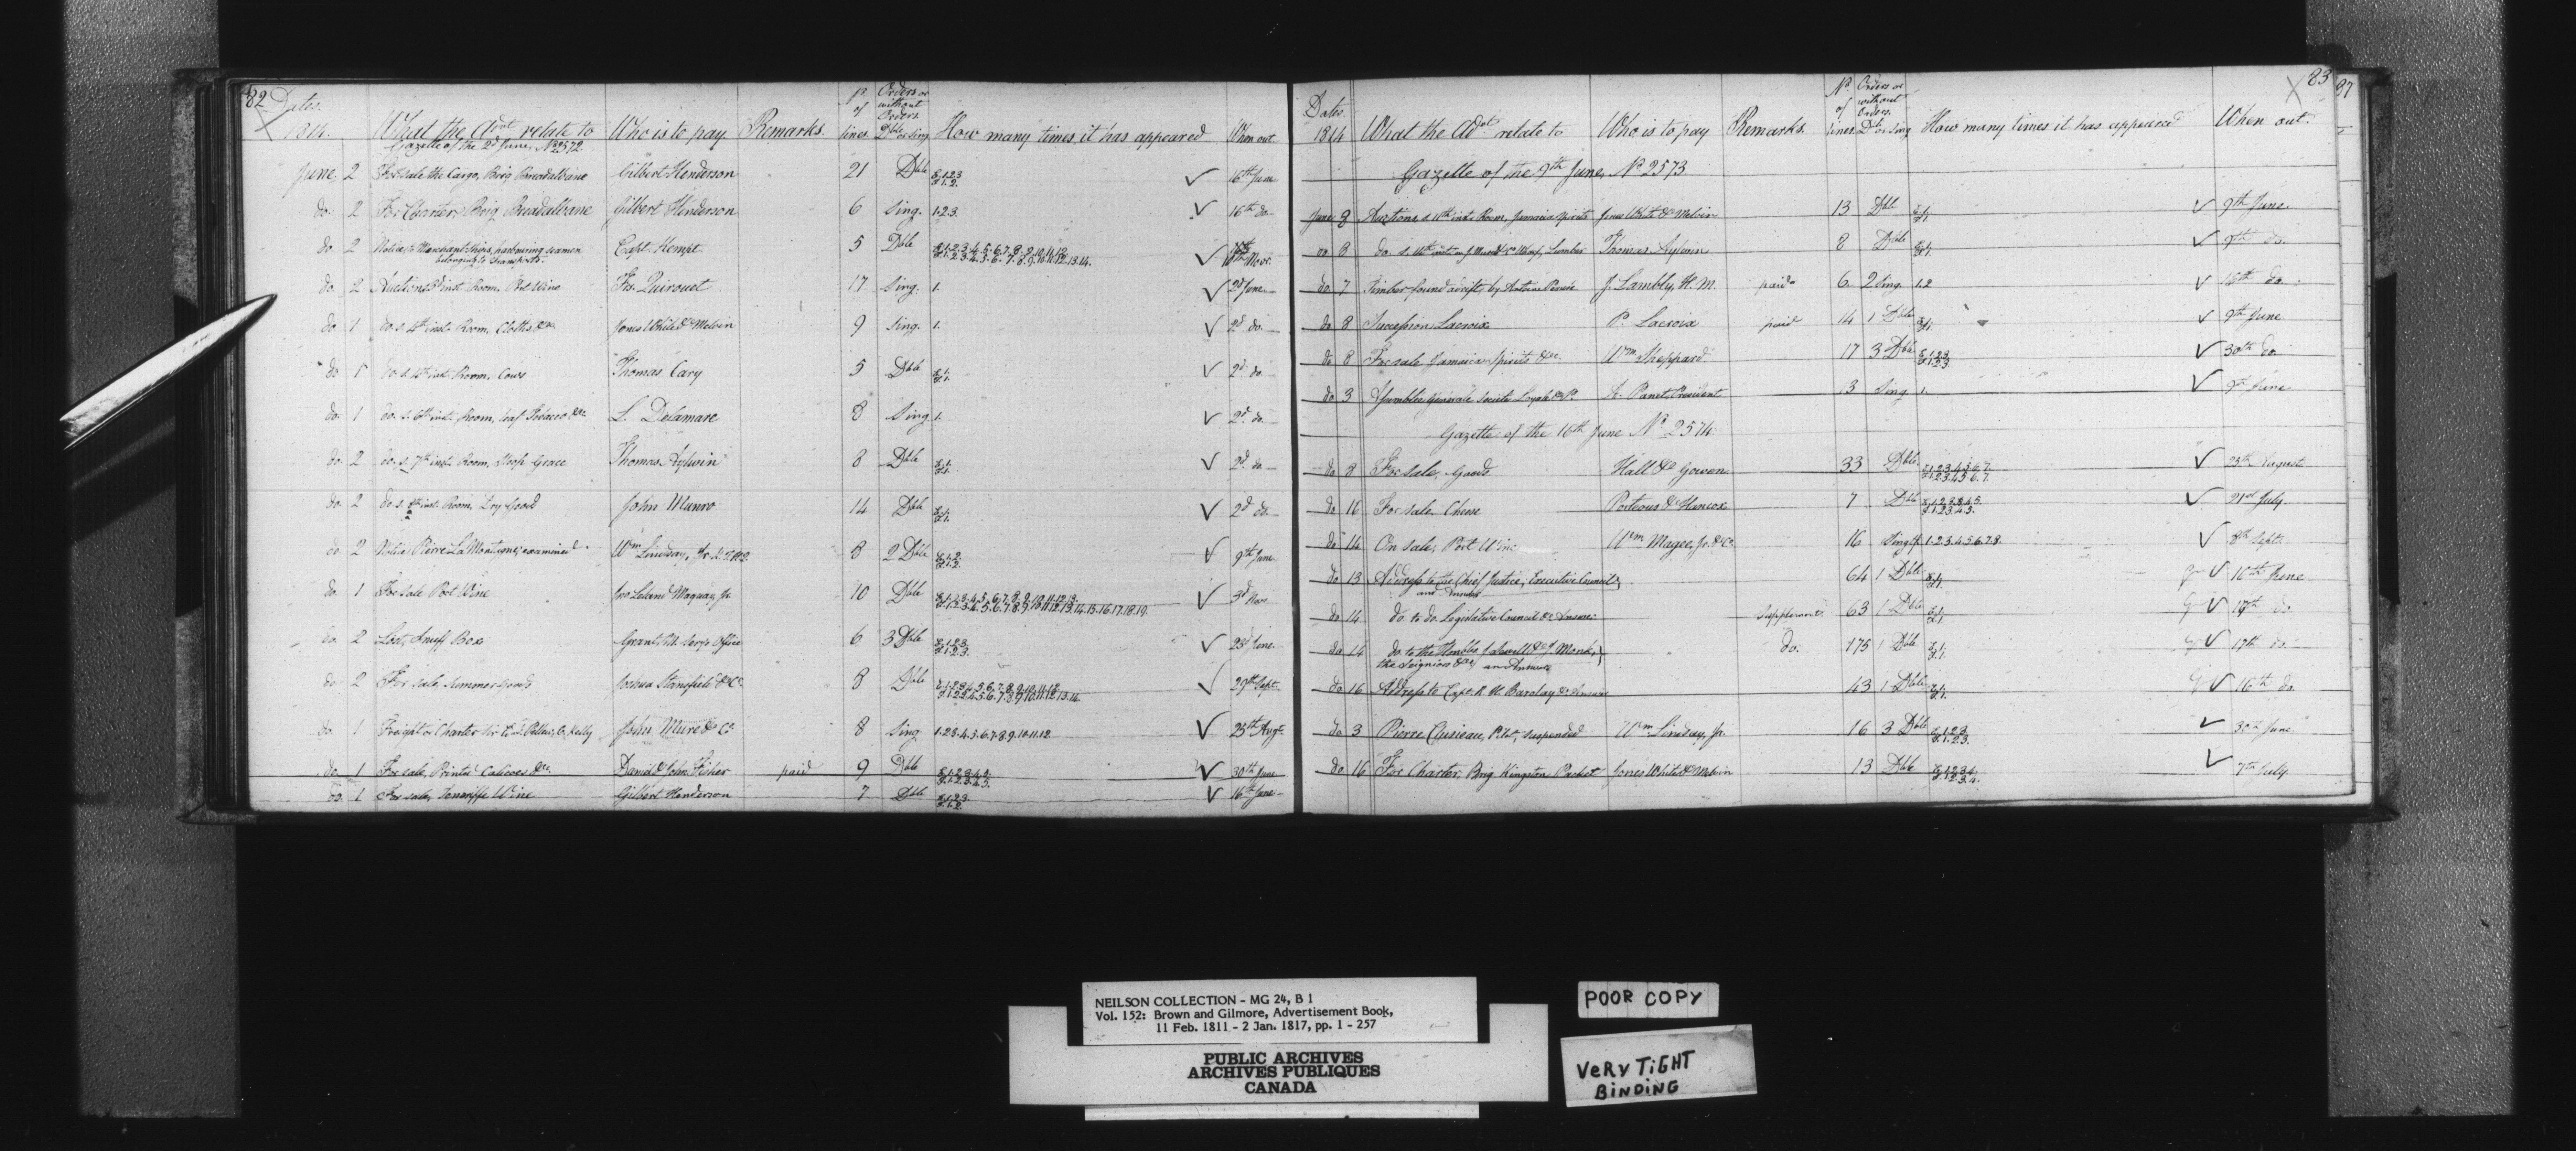 82 Dates. 1814. What the Advt relate to Who is to pay Remarks. No. of lines. Orders or without Orders. Dble or Sing. How many times it has appeared When out.
Gazette of the 2d June, No 2572.
June 2 For sale the Cargo, Brig Breadalbane Gilbert Henderson 21 Dble E. 1.2.3 F. 1.2. ✓ 16th June
do. 2 For Charter, Brig Breadalbane Gilbert Henderson 6 Sing. 1.2.3. ✓ 16th do.
do 2 Notice to Merchant Ships, harbouring seamen belonging to Transports. Capt. Kempt 5 Dble ✓
do 2 Auction inst. Room, Port Wine Frs. Quirouet 17 Sing. 1. ✓ 2d June
do 1 do. s. 4th inst. Room, Cloths &c. Jones White & Melvin 9 Sing. 1. ✓ 2d do.
do 1 do. s. 4th inst. Room, Cows Thomas Cary 5 Dble E. 1. F. 1. ✓ 2d. do
do. 1 do. s. 6th inst. Room, Leaf Tobacco &c. L. Delamare 8 Sing. 1. ✓ 2d. do
do. 2 do. s. 7th inst. Room, Sloop Grace Thomas Aylwin 8 Dble E. 1. F. 1. ✓ 2d. do
do. 2 do s. 8th inst. Room, Dry Good John Munro 14 Dble E. 1. F. 1. ✓ 2d do.
do. 2 Notice Pierre La Montagne, examined Wm Lindsay, Jr. 8 2 Dble E. 1.2. F. 1.2. ✓ 9th June
do. 1 For sale Port Wine Jno Leland Maquay, Jr. 10 Dble ✓ 3d Nov.
do. 2 Lost, Snuff Box Grant, Office 6 3 Dble E. 1.2.3. F. 1.2.3. ✓ 23d June.
do 2 For sale, summer goods Joshua Stansfield & Co. 8 Dble E. 1.2.3.4.5.6.7.8.9.10.11.12 F. 1.2.3.4.5.6.7.8.9.10.11.12.13.14 ✓ 29th Sept.
do. 1 Freight or Charter Kelly John Mure & Co 8 Sing. 1.2.3.4.5.6.7.8.9.10.11.12 ✓ 25th Augt.
do. 1 For sale, Printed Calicoes &c. Daniel & John Fisher paid 9 Dble ✓ 30th June
do. 1 For sale, Teneriffe Wine Gilbert Henderson 7 Dble E. 1.2.3. F. 1.2. ✓ 16th June
83 87
Dates 1814 What the Advt relate to Who is to pay Remarks. No. of lines. Orders or without Orders. Db. or Sing How many times it has appeared When out.
Gazette of the 9th June, No 2573
June 9 Auction s. 11th inst. Room, Jamaica Spirits Jones White & Melvin 13 Dble E. 1. F. 1. ✓ 9th June
do 8 do. s. 11th inst. Wharf, Lumber Thomas Aylwin 8 Dble E. 1. F. 1. ✓ 9th do.
do 7 Timber found adrift, by Antoine J. Lambly, H. M. paid 6 2 Sing. 1.2 ✓ 16th do.
do 8 Succession Lacroix P. Lacroix paid 14 1 Dble E. 1. F. 1. ✓ 9th June
do 8 For sale, Jamaica Spirits &c. Wm Sheppard 17 3 Dble E. 1.2.3. F. 1.2.3. ✓ 30th do
do 3 Générale Société A. Panet, President 3 Sing. 1. ✓ 9th June
Gazette of the 16th June No 2574
do 8 For sale, Goods Hall & Gowen 33 Dble E. 1.2.3.4.5.6.7. F. 1.2.3.4.5.6.7. ✓ 25th August
do 16 For sale, Cheese Porteous & Hancox 7 Dble ✓ 21st July
do 14 On sale, Port Wine Wm Magee, Jr. & Co. 16 Sing. 1.2.3.4.5.6.7.8. ✓ 8th Sept.
do 13 Address to the Chief Justice, Executive Council, and Answer 64 1 Dble E. 1. F. 1. ✓ 16th June
do 14 do. to do. Legislative Council & Answer supplement 63 1 Dble E. 1. F. 1. ✓ 17th do
do 14 do. to the Honbles. J. Sewell & J. Monk, the Seigniors &c. an Answer do. 175 1 Dble E. 1. F. 1. ✓ 17th do.
do 16 Address to Capt. R. H. Barclay & Answer 43 1 Dble E. 1. F. 1. ✓ 16th do.
do 3 Pierre Pilot, suspended Wm Lindsay, Jr. 16 3 Dble E. 1.2.3 F. 1.2.3. ✓ 30th June
do 16 For Charter, Brig Kingston Packet Jones White & Melvin 13 Dble E. 1.2.3.4. F. 1.2.3.4. ✓ 7th July
NEILSON COLLECTION - MG 24, B 1
Vol. 152: Brown and Gilmore, Advertisement Book,
11 Feb. 1811 - 2 Jan. 1817, pp. 1 - 257
PUBLIC ARCHIVES
ARCHIVES PUBLIQUES
CANADA
POOR COPY
VeRy TiGHT
BiNDiNG